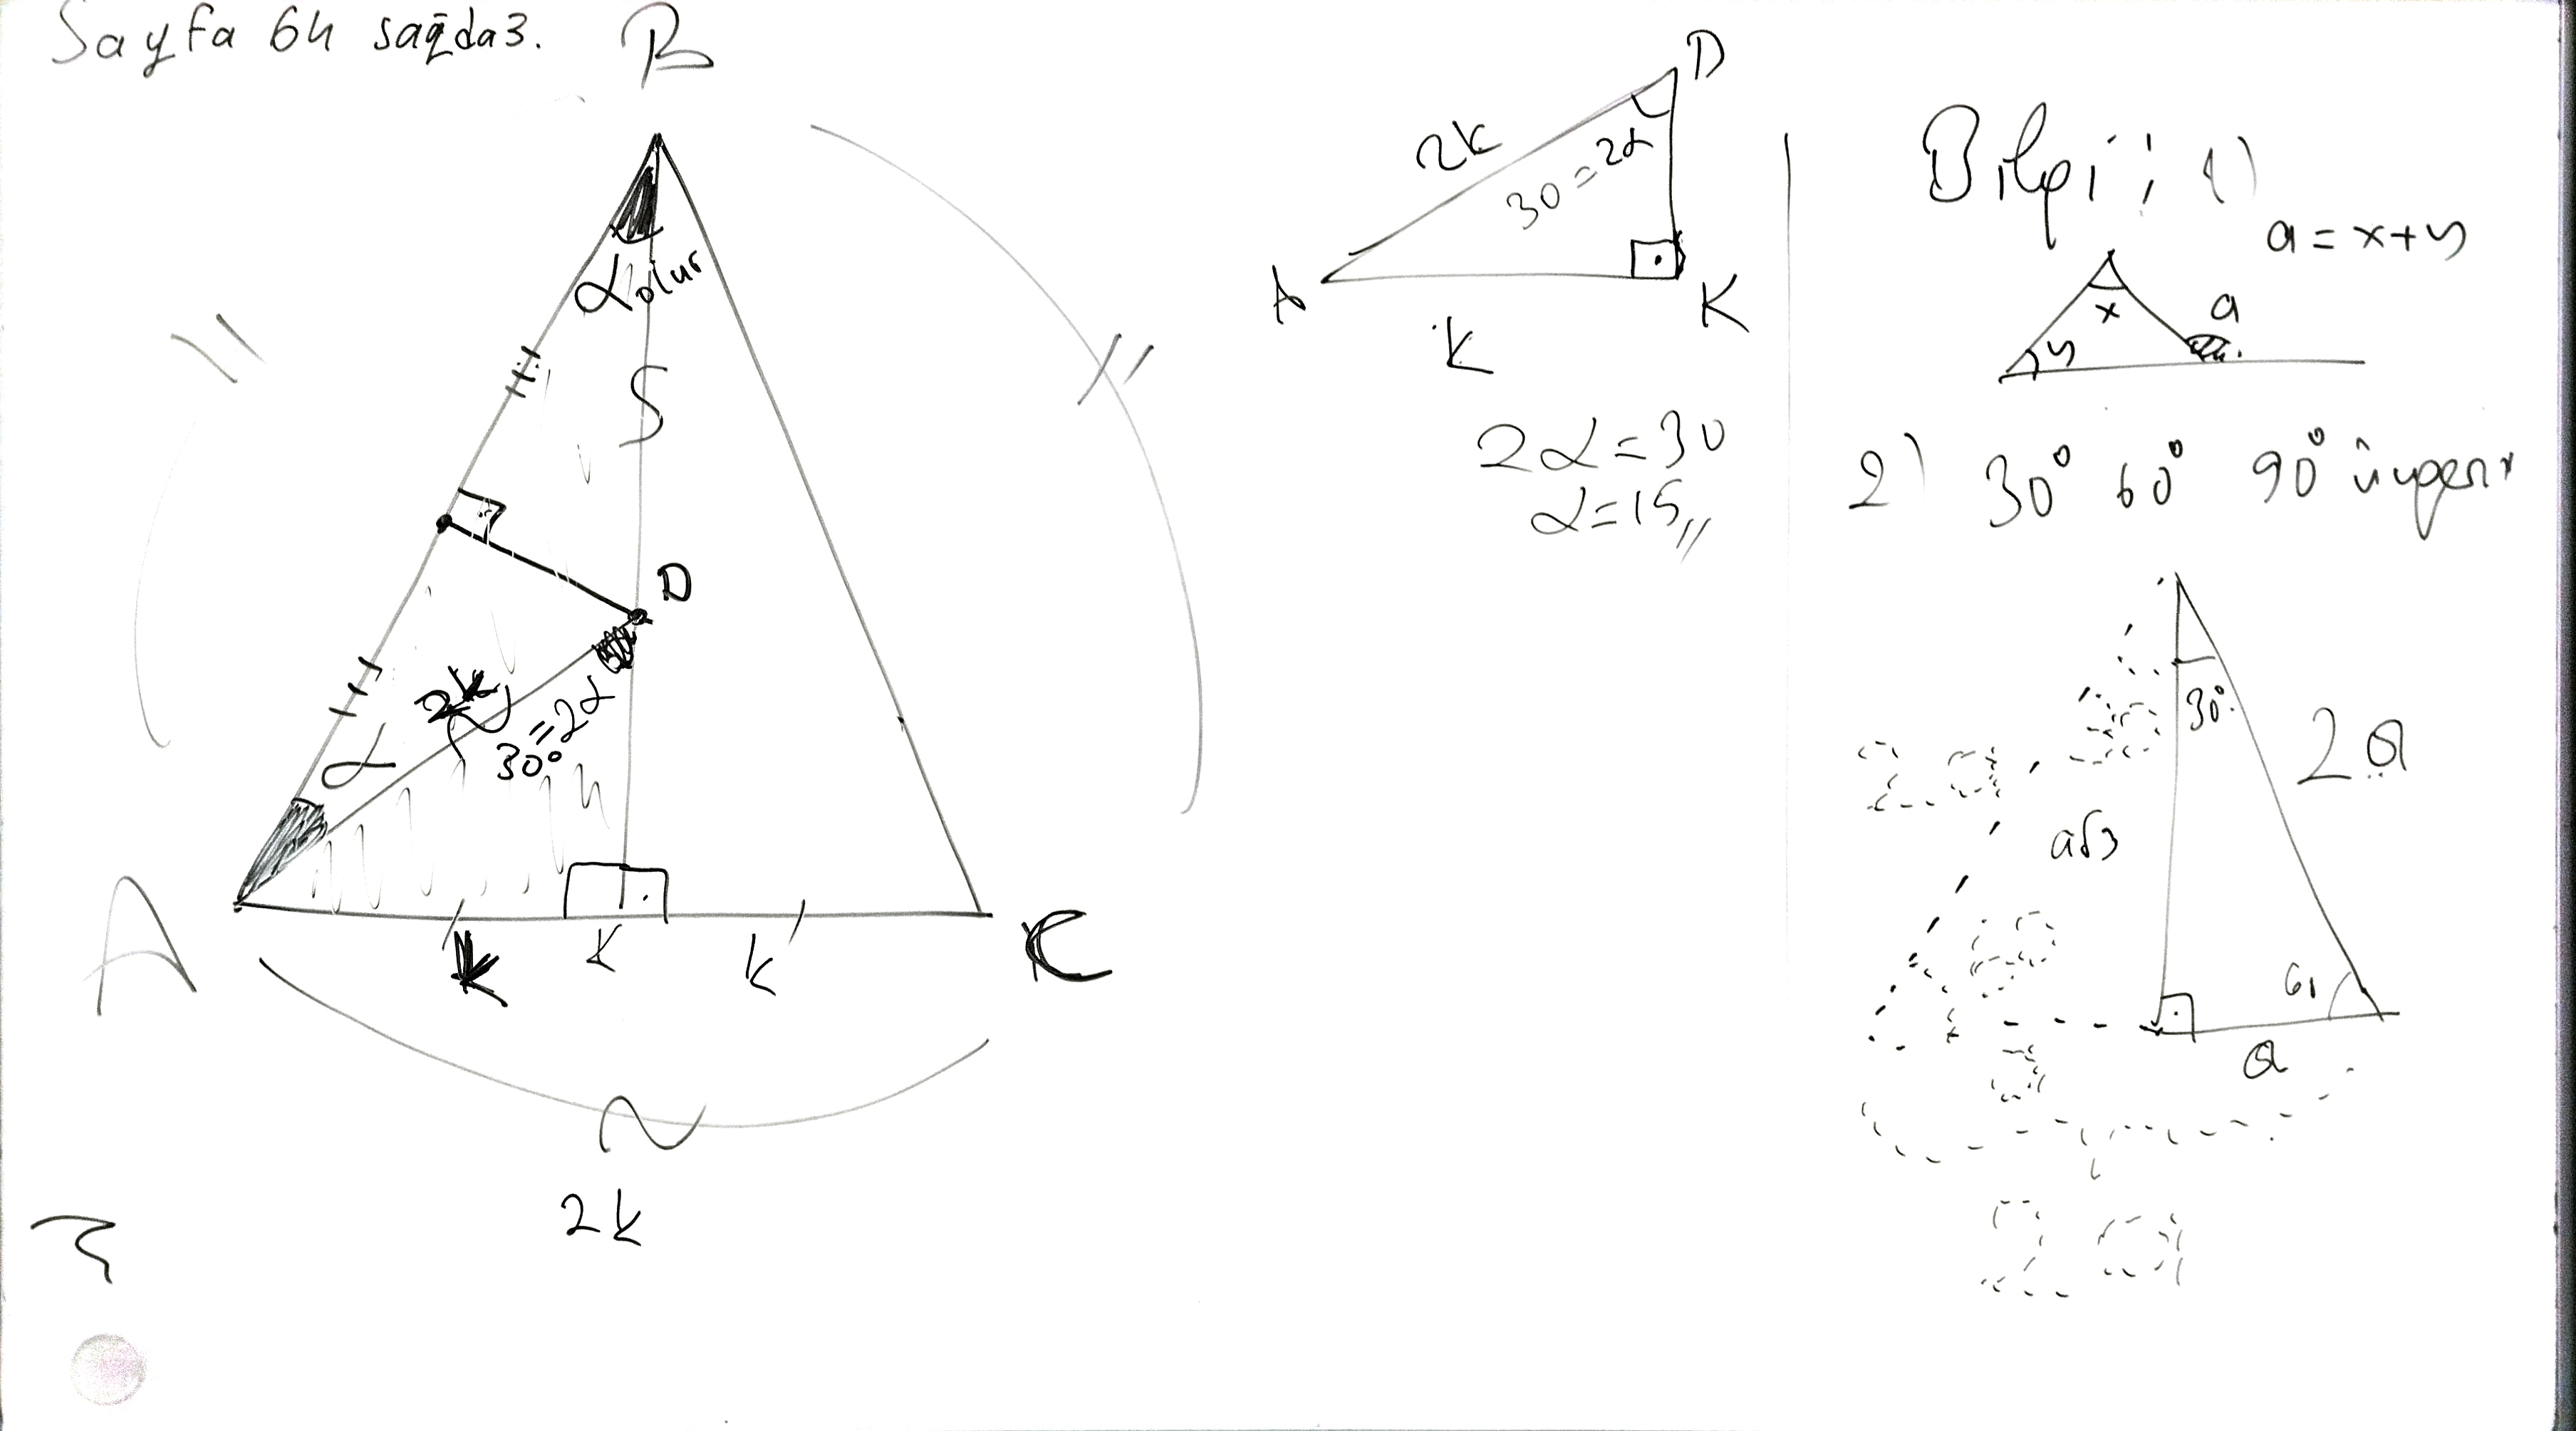 Sayfa 64 sağda 3.
B
α olur
S
D
2k
30° = 2α
α
A
k
k
k
C
2k
3
D
2k
30 = 2α
A
k
K
2α = 30
α = 15 //
Bilgi : 1)
a = x + y
x
a
y
2) 30° 60° 90° üçgeni
30°
2a
a√3
a